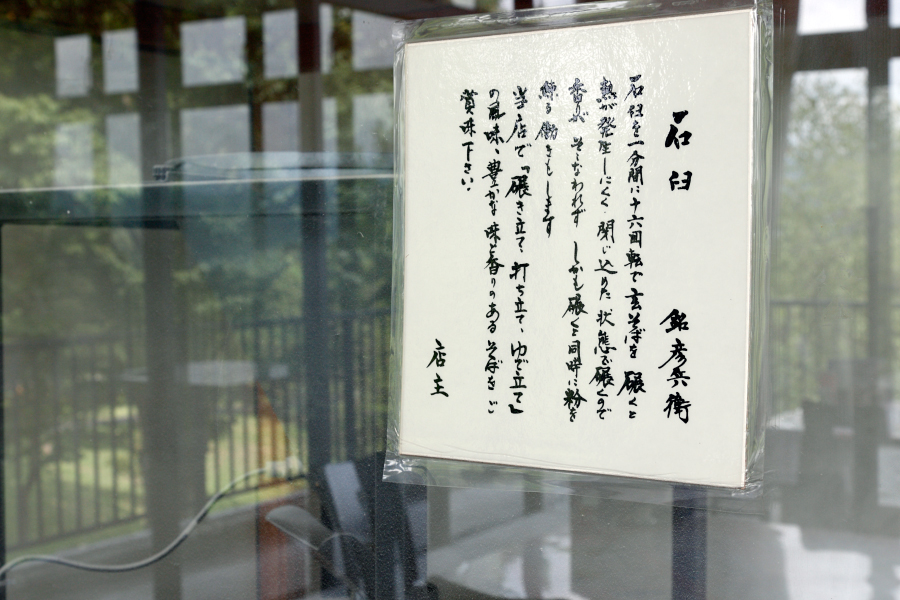 石臼　銘彦兵衛
石臼を一分間に十六回転で玄そばを碾くと
熱が発生しにくく閉じ込めた状態で碾くので
香りが そこなわれず しかも碾くと同時に粉を
練る働きもします
当店で『碾き立て、打ち立て、ゆで立て』
の風味、豊かな味と香りのあるそばをご
賞味下さい。
店主